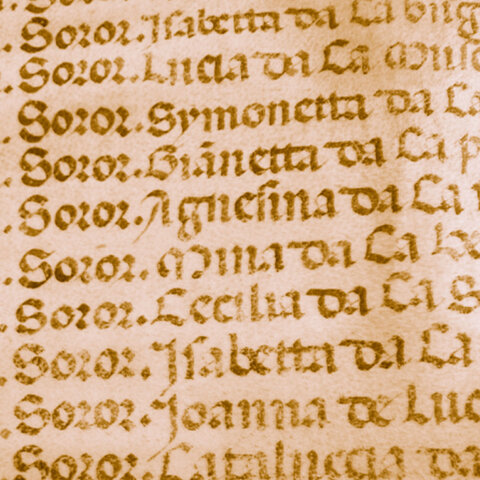 . Soror. Isabetta da La
. Soror. Lucia da La
. Soror. Symonetta da La
. Soror. Giānetta da La
. Soror. Agnesina da La
. Soror. Mina da La
. Soror. Cecilia da La
. Soror. Isabetta da La
. Soror. Joanna de Luc
. Soror. Cataluccia da